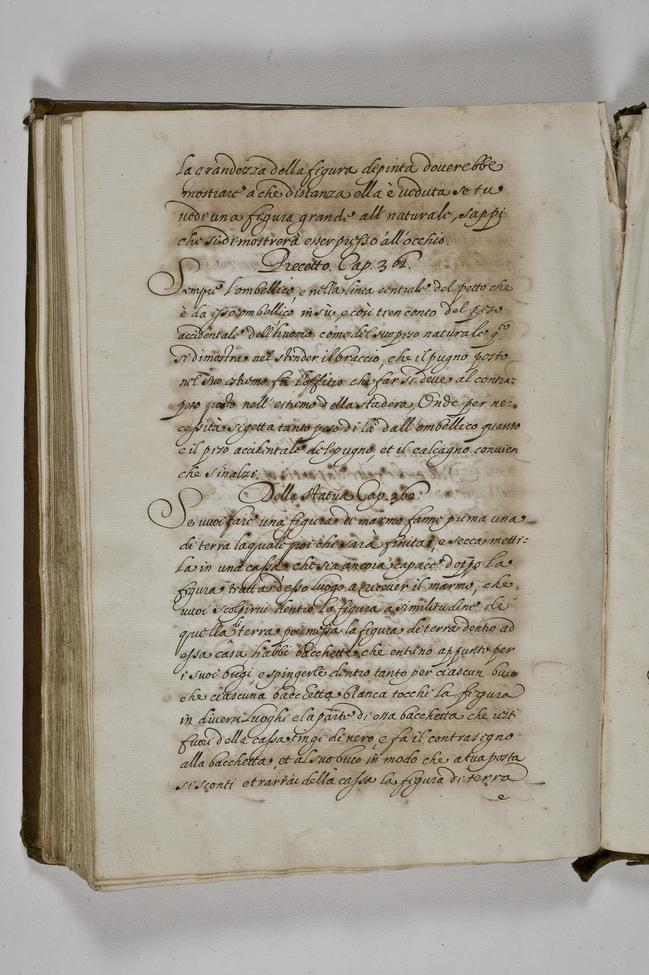 la grandezza della figura dipinta doverebbe
mostrare à che distanza ella è veduta se tu
vedi una figura grande all naturale, sappi
che si dimostrerà esser presso all'occhio.
Precetto. Cap. 361.
Sempre l'ombellico è nella linea centrale del petto che
è da esso ombellico in sù, e così tien conto del peso
accidentale dell'huomo come del suo peso naturale q.to
si dimostra nel stender il braccio, che il pugno posto
nel suo estremo fa l'offitio che far si deve al contra-
peso posto nell'estremo della stadera, Onde per ne-
cessità si getta tanto peso di là dall'ombellico quanto
è il peso accidentale del pugno, et il calcagno convien
che s'inalzi.
Della statua Cap. 362.
Se vuoi fare una figura di marmo fanne prima una
di terra laquale poi che sarà finita, e secca metti-
la in una cassa che sia ancora capace doppo la
figura tratta d'esso luogo a ricever il marmo, che
vuoi scolpirvi dentro la figura a similitudine di
quella di terra poi messa la figura di terra dentro ad
essa cassa habbi bacchette che entrino appunto per
i suoi bugi, e spingerle dentro tanto per ciascun buco
che ciascuna bacchetta bianca tocchi la figura
in diversi luoghi e la parte di essa bacchetta che resti
fuori della cassa tingi di nero, e fa il contrasegno
alla bacchetta, et al suo buco in modo che a tua posta
si sconti e trarrai della cassa la figura di terra
e